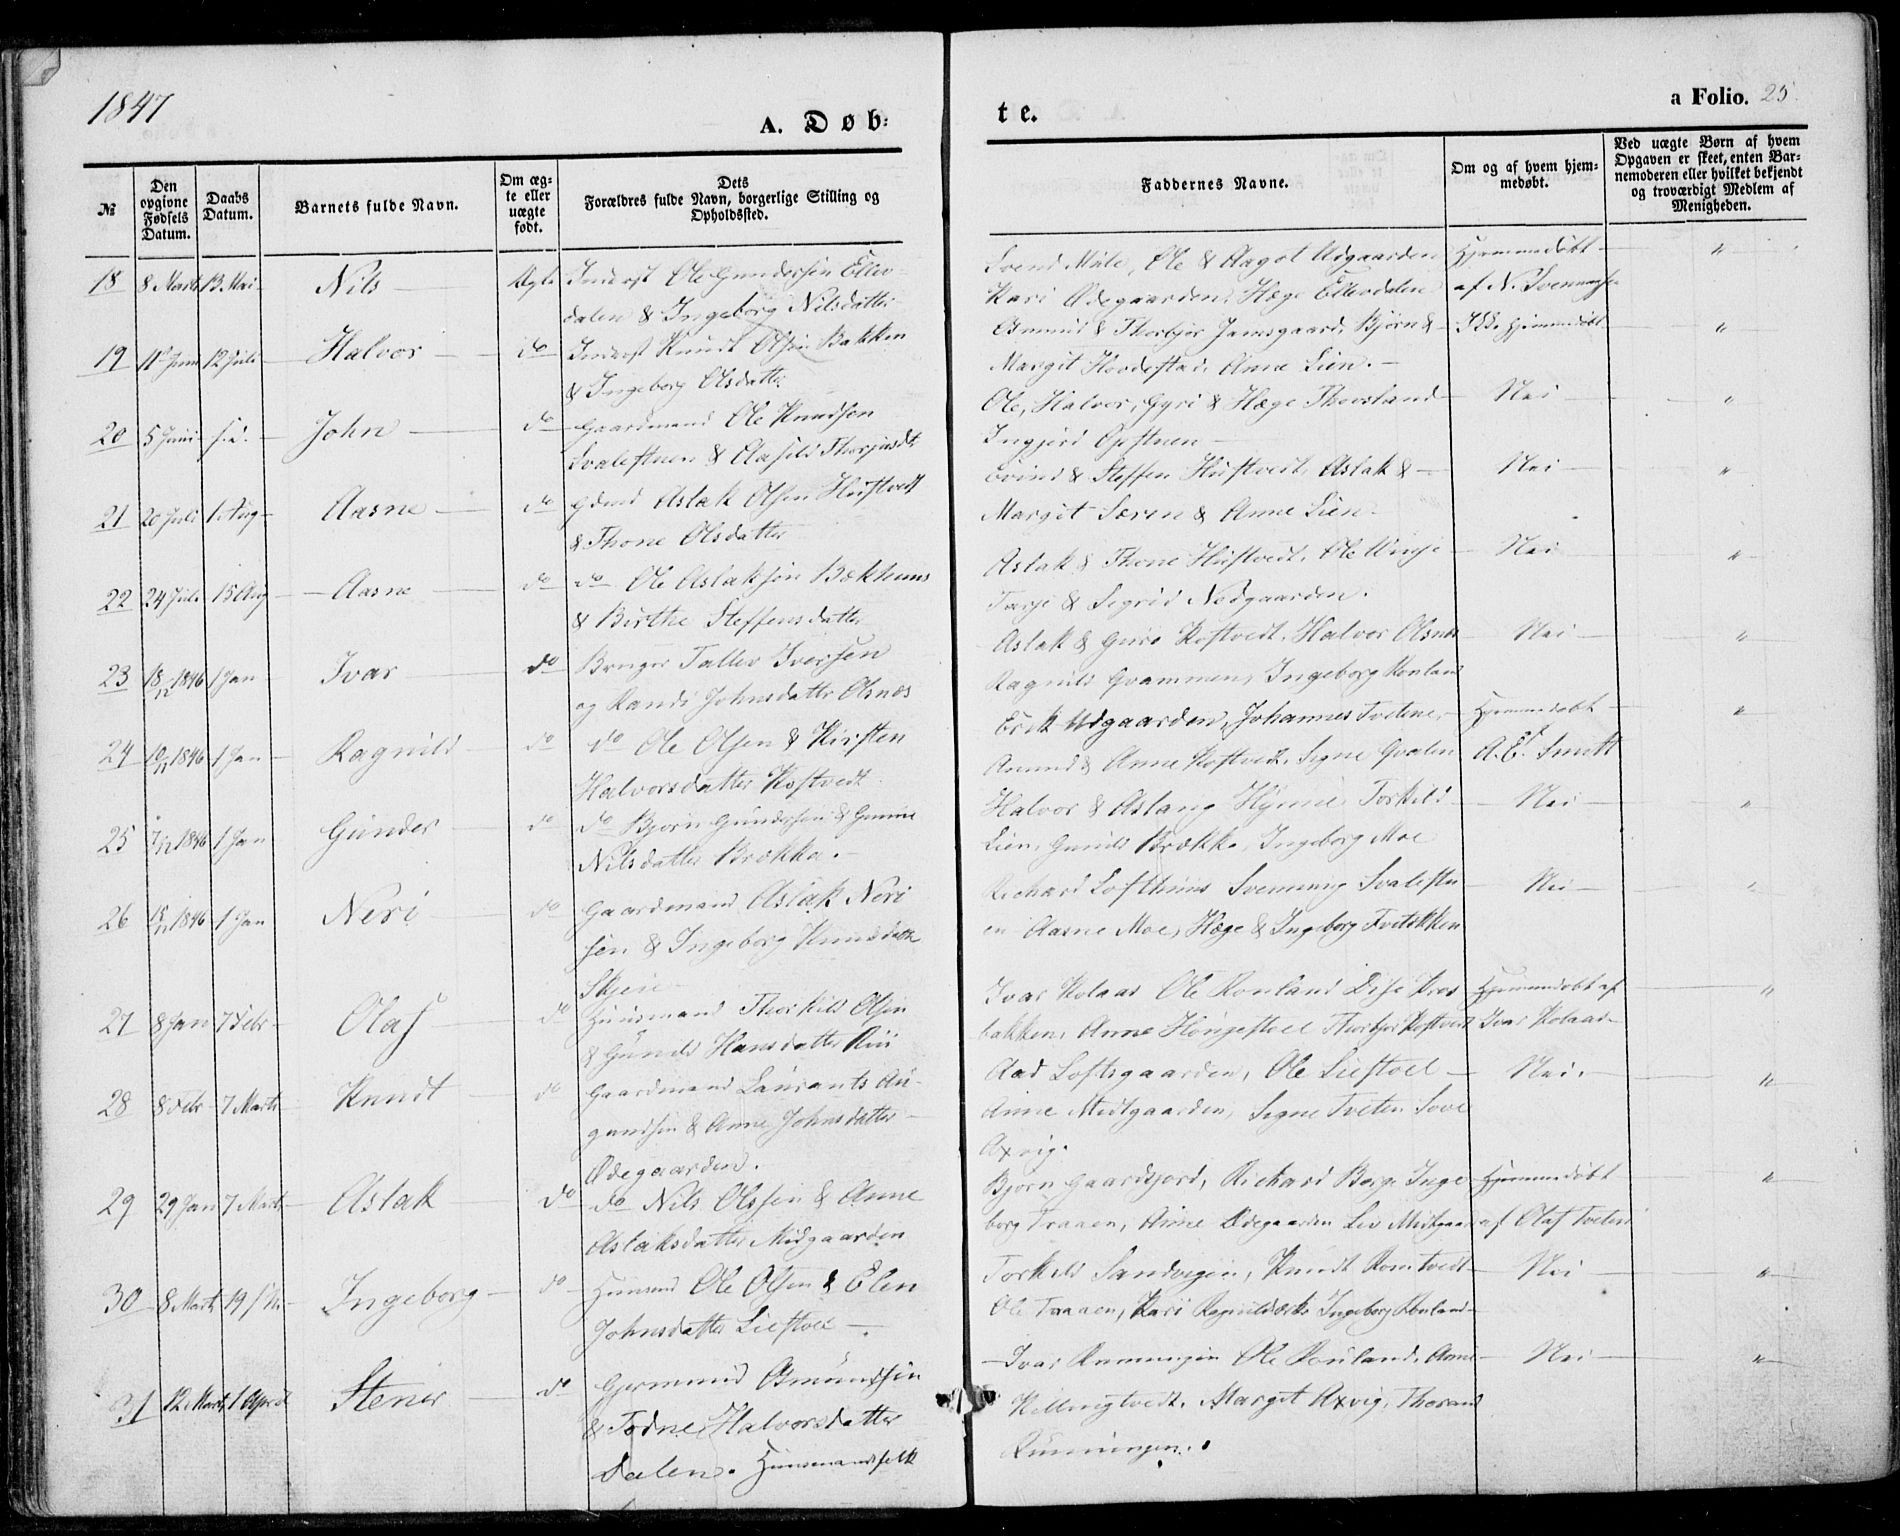 1847
A. Døb-
te.
a Folio. 25.
№
Den opgivne Fødsels Datum.
Daabs Datum.
Barnets fulde Navn.
Om ægte eller uægte født.
Dets Forældres fulde Navn, borgerlige Stilling og Opholdssted.
Faddernes Navne.
Om og af hvem hjemmedøbt.
Ved uægte Børn af hvem Opgaven er skeet, enten Barnemoderen eller hvilket bekjendt og troværdigt Medlem af Menigheden.
18 8 Marts 13 Mai Nils Ægte Inderst Ole Gundersen Ellev-
dalen & Ingeborg Nilsdatter
Svend Mule, Ole & Aagot Udgaarden Hjemmedøbt "
Kari Ødegaarden, Hæge Ellevdalen af N. Svenningsen
19 12 Juli Halvor do Inderst Knudt Olsen Bakken
& Ingeborg Olsdatter
Asmund & Thorbjør Jamsgaard, Bjørn & Ikke Hjemmedøbt "
Margit Hovdestad, Anne Lien.
20 5 Juni s.d. John do Gaardmand Ole Knudsen
Svalestuen & Aasild
Ole, Halvor, Gyri & Hæge Thovsland Nei "
Ingjerd
21 20 Juli 1 Aug Aasne do Gdmd Aslak Olsen Hustvedt
& Thone Olsdatter
Eivind & Steffen Hustvedt, Aslak & Nei "
Margit Særen & Anne Lien.
22 24 Juli 15 Aug Aasne do do Ole Aslaksen Bækhuus
& Birthe Steffensdatter
Aslak & Thone Hustvedt, Ole Vinje Nei "
Tarje & Sigrid Nedgaarden.
23 18/12 1846 1 Jan Ivar do Bruger Tallev Iversen
og Randi Johnsdatter Olsnes
Aslak & Guro Kostvedt, Halvor Olsnes Nei "
Ragnild Gvammen, Ingeborg Rouland
24 10/11 1846 1 Jan Ragnild do do Ole Olsen & Kirsten
Halvorsdatter Kostvedt
Erik Udgaarden, Johannes Tvetene, Hjemmedøbt af "
Amund & Anne Kostvedt, Signe Gvalen A. E. Smitt
25 7/12 1846 1 Jan Gunder do do Bjørn Gundersen & Gunne
Nilsdatter Brække.
Halvor & Aslaug Hynne, Torkild Nei "
Lien, Gunild Brække, Ingeborg Moe
26 1846 1 Jan Neri do Gaardmand Aslak Neri
sen & Ingeborg Knudsdatter
Skjeie
Richard Lofthuus Svenning Svalestu Nei "
en Aasne Moe, Hæge & Ingeborg Tveitekken
27 8 Jan 7 Febr Olaf do Huusmand Thorkild Olsen
& Gunild Hansdatter Rui
Ivar Kolaas Ole Rouland Hjemmedøbt af "
bakken, Anne Thorbjør Kostvedt Ivar Kolaas
28 8 Febr 7 Marts Knudt do Gaardmand Laurants Au-
gundsen & Anne Johnsdatter
Ødegaarden.
Aad Loftsgaarden, Ole Liestoel Nei. "
Anne Midtgaarden, Signe Tveten
Axvig.
29 29 Jan 7 Marts Aslak do do Nils Olssen & Anne
Aslaksdatter Midgaarden
Bjørn Gaardsjord, Richard Berge Inge Hjemmedøbt "
borg Traaen, Anne Ødegaarden Liv Midtgaar af Olaf Tveten
30 8 Marts 19 Ingeborg do Huusmd Ole Olsen & Elen
Johnsdatter Liestoel
Torkild Sandvigen, Knudt Romtvedt Nei "
Ole Traaen, Kari Ingeborg Rouland
31 12 Marts 1 April Stener do Gjermund Asmundsen
& Todne Halvorsdatter
Dalen. Huusmandsfolk
Ivar Rummingen Ole Rouland, Anne Nei "
Killingtvedt, Margit Axvig, Thorand
Rummingen.